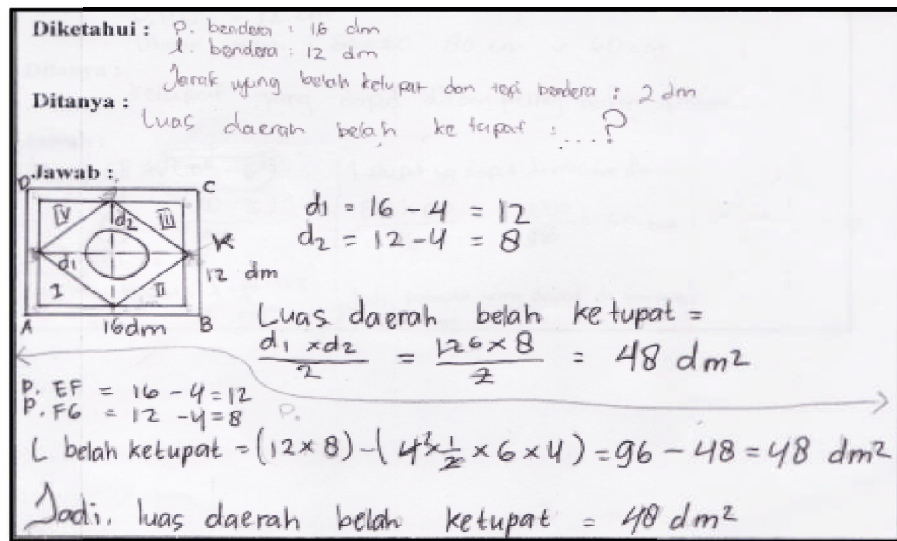 Diketahui : p. bendera : 16 dm
l. bendera : 12 dm
Jarak ujung belah ketupat dan tepi bendera : 2 dm
Ditanya :
Luas daerah belah ketupat : ....?
Jawab :
D C
IV d2 III
d1
12 dm
I II
A 16dm B
d1 = 16 - 4 = 12
d2 = 12 - 4 = 8
Luas daerah belah ketupat =
d1 x d2 / 2 = 12 6 x 8 / 2 = 48 dm2
P. EF = 16 - 4 = 12
P. FG = 12 - 4 = 8
L belah ketupat = (12 x 8) - (4 2 x 1/2 x 6 x 4) = 96 - 48 = 48 dm2
Jadi, luas daerah belah ketupat = 48 dm2